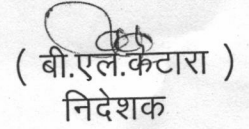 ( बी.एल.कटारा )
निदेशक